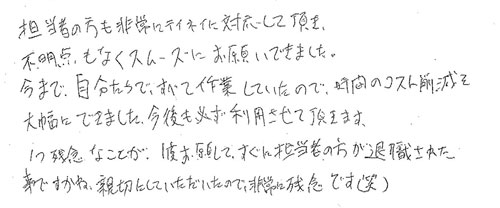 担当者の方も非常にテイネイに対応して頂き、
不明点もなくスムーズにお願いできました。
今まで、自分たちで、すべて作業していたので、時間のコスト削減を
大幅にできました。今後も必ず利用させて頂きます。
1つ残念なことが、お願して、すぐに担当者の方が退職された
事ですかね、親切にしていただいたので、非常に残念です(笑)